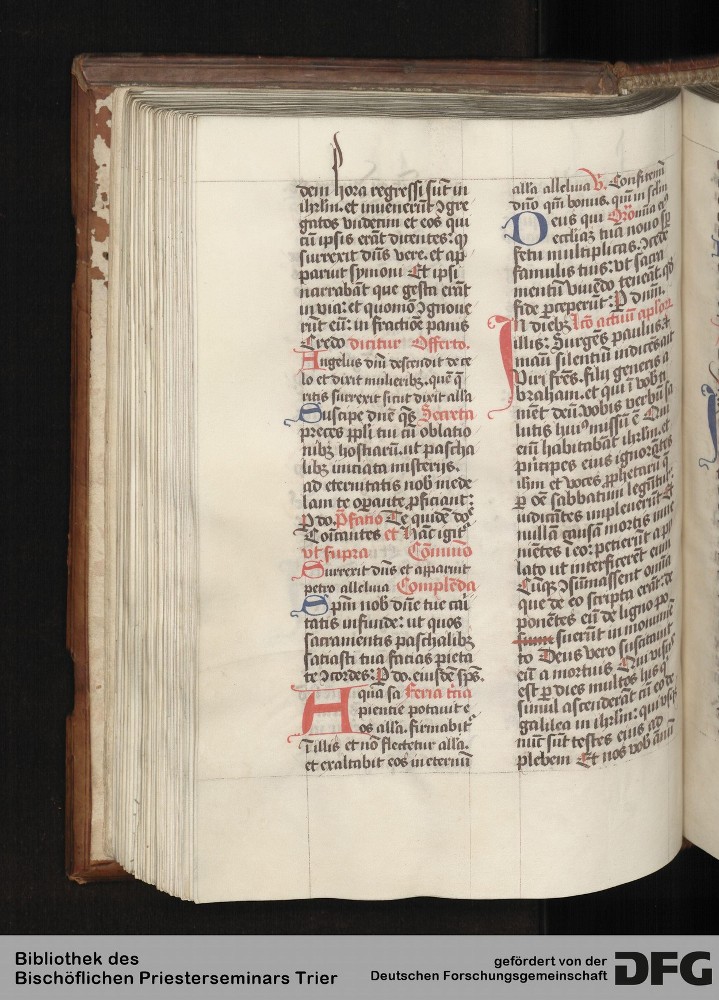 dem hora regressi sūt in
ihrl̄m. et inuenerūt ɔgre
gatos vndecim et eos qui
cū ipsis erāt dicentes: qꝫ
surrexit dn̄s vere. et ap
paruit symoni Et ipsi
narrabāt que gesta erāt
in via: et quomō ɔgnoue
rūt eū: in fractiōe panis
Credo dicitur Offerto.
Angelus dn̄i descendit de ce
lo et dixit mulieribꝫ. quē q̄
ritis surrexit sicut dixit all'a
Suscipe dn̄e q̄s Secreta
preces ppl̄i tui cū oblatio
nibꝫ hostiarū. ut pascha
libꝫ iniciata misterijs.
ad eternitatis nob̄ mede
lam te oꝑante ꝓficiant:
P do. P̄fatio Te quidē
Cōicantes et Hāc igit̄
vt supra Cōmuno
Surrexit dn̄s et apparuit
petro alleluia Complēda
Spm̄ nob̄ dn̄e tue cari
tatis infunde: ut quos
sacramentis paschalibꝫ
satiasti tua facias pieta
te ɔcordes: P do. eiusdē sp̄s.
Aqua sa Feria tcia
pientie potauit e
os all'a. firmabit̄
ī illis et nō flectetur all'a.
et exaltabit eos in eternū
all'a alleluia V. Confitemī
dn̄o qm̄ bonus. qm̄ in sclm̄
Deus qui Oro
eccl̄iaꝫ tuā nouo sꝑ
fetu multiplicas: ɔcede
famulis tuis: vt sacra
mentū viuēdo teneāt. qd̄
fide ꝑceperūt: P dn̄m.
In diebꝫ lc̄o actuū apl'oꝝ
illis: Surgēs paulus: et
manū silentiū indicēs ait
Viri fr̄es. filij generis a
braham. et qui ī vob̄ ti
mēt deū: vobis verbū sa
lutis huiꝰ missū ē Qui
enī habitabāt ihrl̄m. et
pūcipes eius ignorātes
ihm̄ et voces ꝓphetarū q̄
ꝑ oē sabbatum legūtur.
iudicātes impleuerūt Et
nullā causā mortis inue
niētes ī eo: petierūt a py
lato ut interficerēt eum
Cūqꝫ ɔsūmassent omīa
que de eo scripta erāt: de
ponētes eū de ligno po-
suerūt in monumē
to Deus vero suscitauit
eū a mortuis Qui visus
est ꝑ dies multos hijs q̄
simul ascenderāt cū eo de
galilea in ihrl̄m: qui usqꝫ
nūc sūt testes eius ad
plebem Et nos vob̄ ānū
Bibliothek des
Bischöflichen Priesterseminars Trier
gefördert von der
Deutschen Forschungsgemeinschaft
DFG